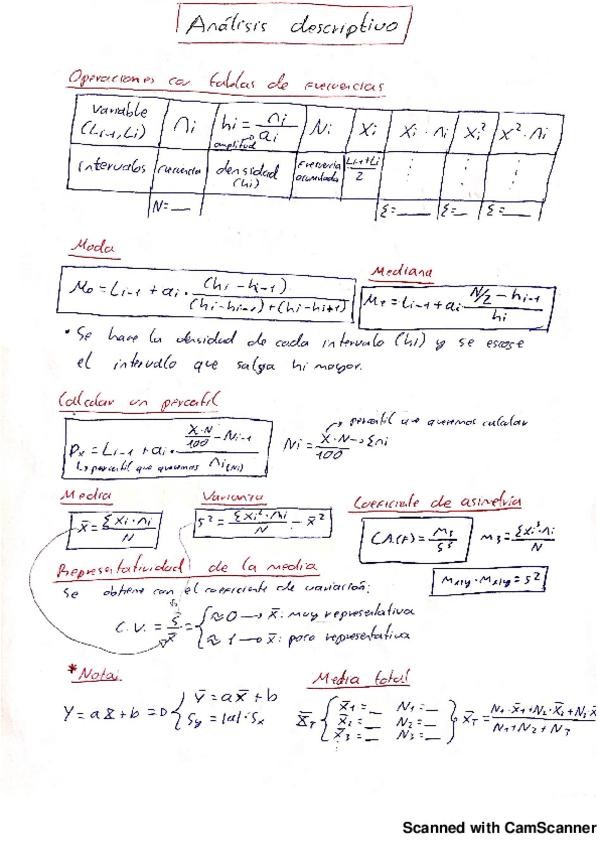 Análisis descriptivo
Operaciones con tablas de frecuencias
Variable (Li-1, Li) | ni | hi = ni/ai amplitud | Ni | Xi | Xi · ni | Xi² | X² · ni
intervalos | frecuencia | densidad (hi) | frecuencia acumulada | Li-1+Li/2 | ⋮ | ⋮ | ⋮
N=__ | Σ=__ | Σ=__ | Σ=__
Moda
Mo = Li-1 + ai · (hi - hi-1)/(hi-hi-1)+(hi-hi+1)
Mediana
= Li-1 + ai · N/2 - hi-1/hi
• Se hace la densidad de cada intervalo (hi) y se escoge
el intervalo que salga hi mayor.
Calcular un percentil
Px = Li-1 + ai · X·N/100 - Ni-1/ni(Ni)
↳ percentil que queremos
Ni = X·N/100 → Σni
→ percentil que queremos calcular
Media
x̄ = Σxi·ni/N
Varianza
s² = Σxi²·ni/N - x̄²
Coeficiente de asimetría
C.A.(F) = m3/s³
m3 = Σxi³·ni/N
Representatividad de la media
Se obtiene con el coeficiente de variación:
C.V. = s/x̄ = { ≈ 0 → x̄: muy representativa
≈ 1 → x̄: poco representativa
*Nota:
Y = aX + b => { Ȳ = aX̄ + b
Sy = |a|·Sx
Media total
X̄T { X̄1=__ N1=__
X̄2=__ N2=__
X̄3=__ N3=__ } X̄T = N1·X̄1+N2·X̄2+N3·X̄/N1+N2+N3
Scanned with CamScanner